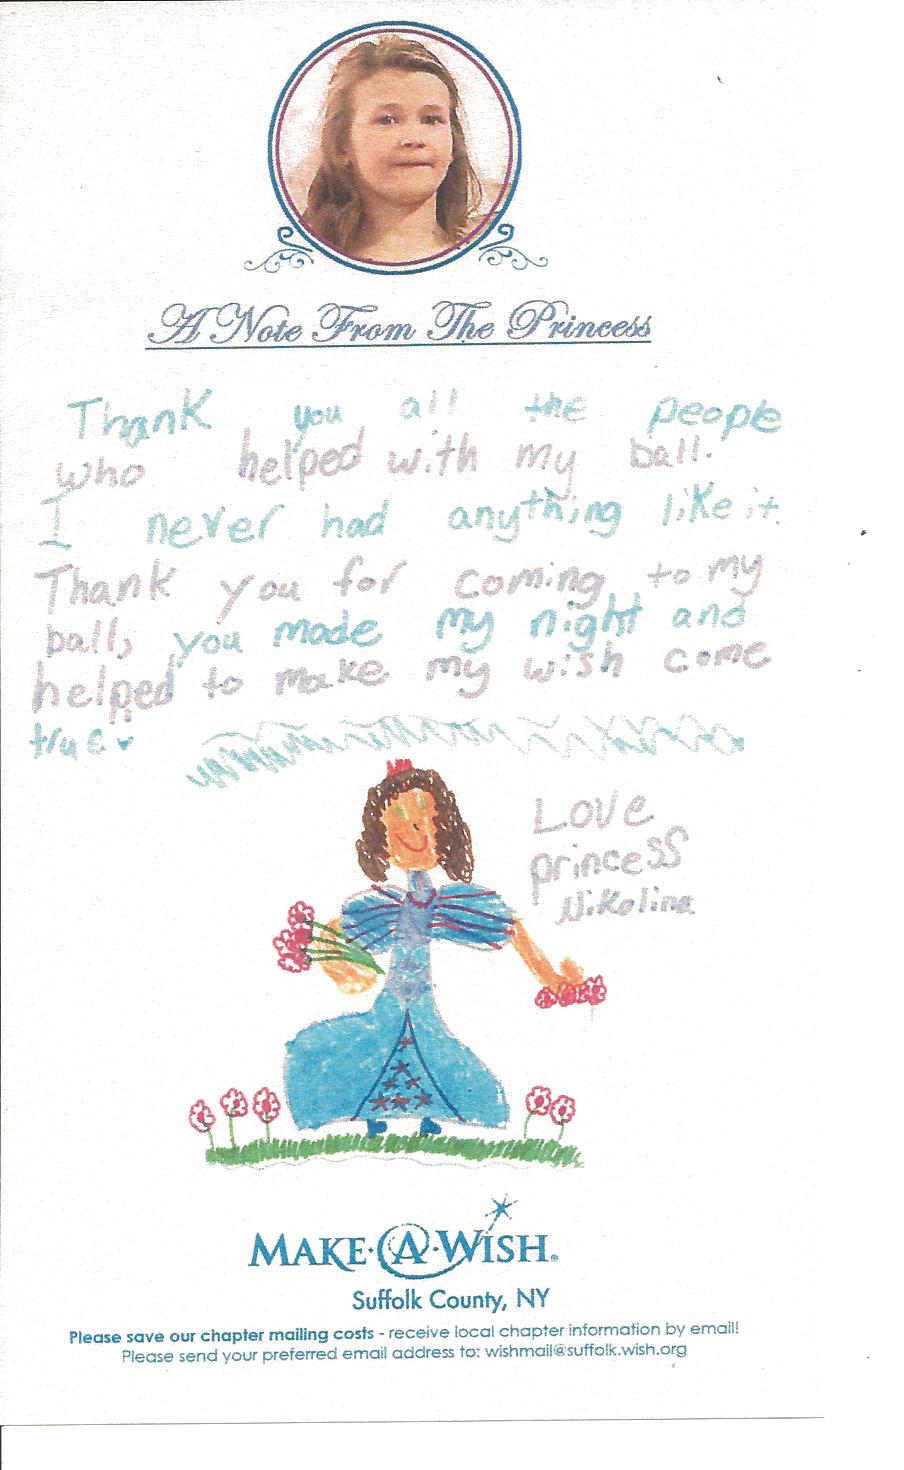 A Note From The Princess
Thank you all the people
who helped with my ball.
I never had anything like it.
Thank you for coming to my
ball, you made my night and
helped to make my wish come
true
Love
princess
Nikolina
MAKE·A·WISH®
Suffolk County, NY
Please save our chapter mailing costs - receive local chapter information by email!
Please send your preferred email address to: wishmail@suffolk.wish.org